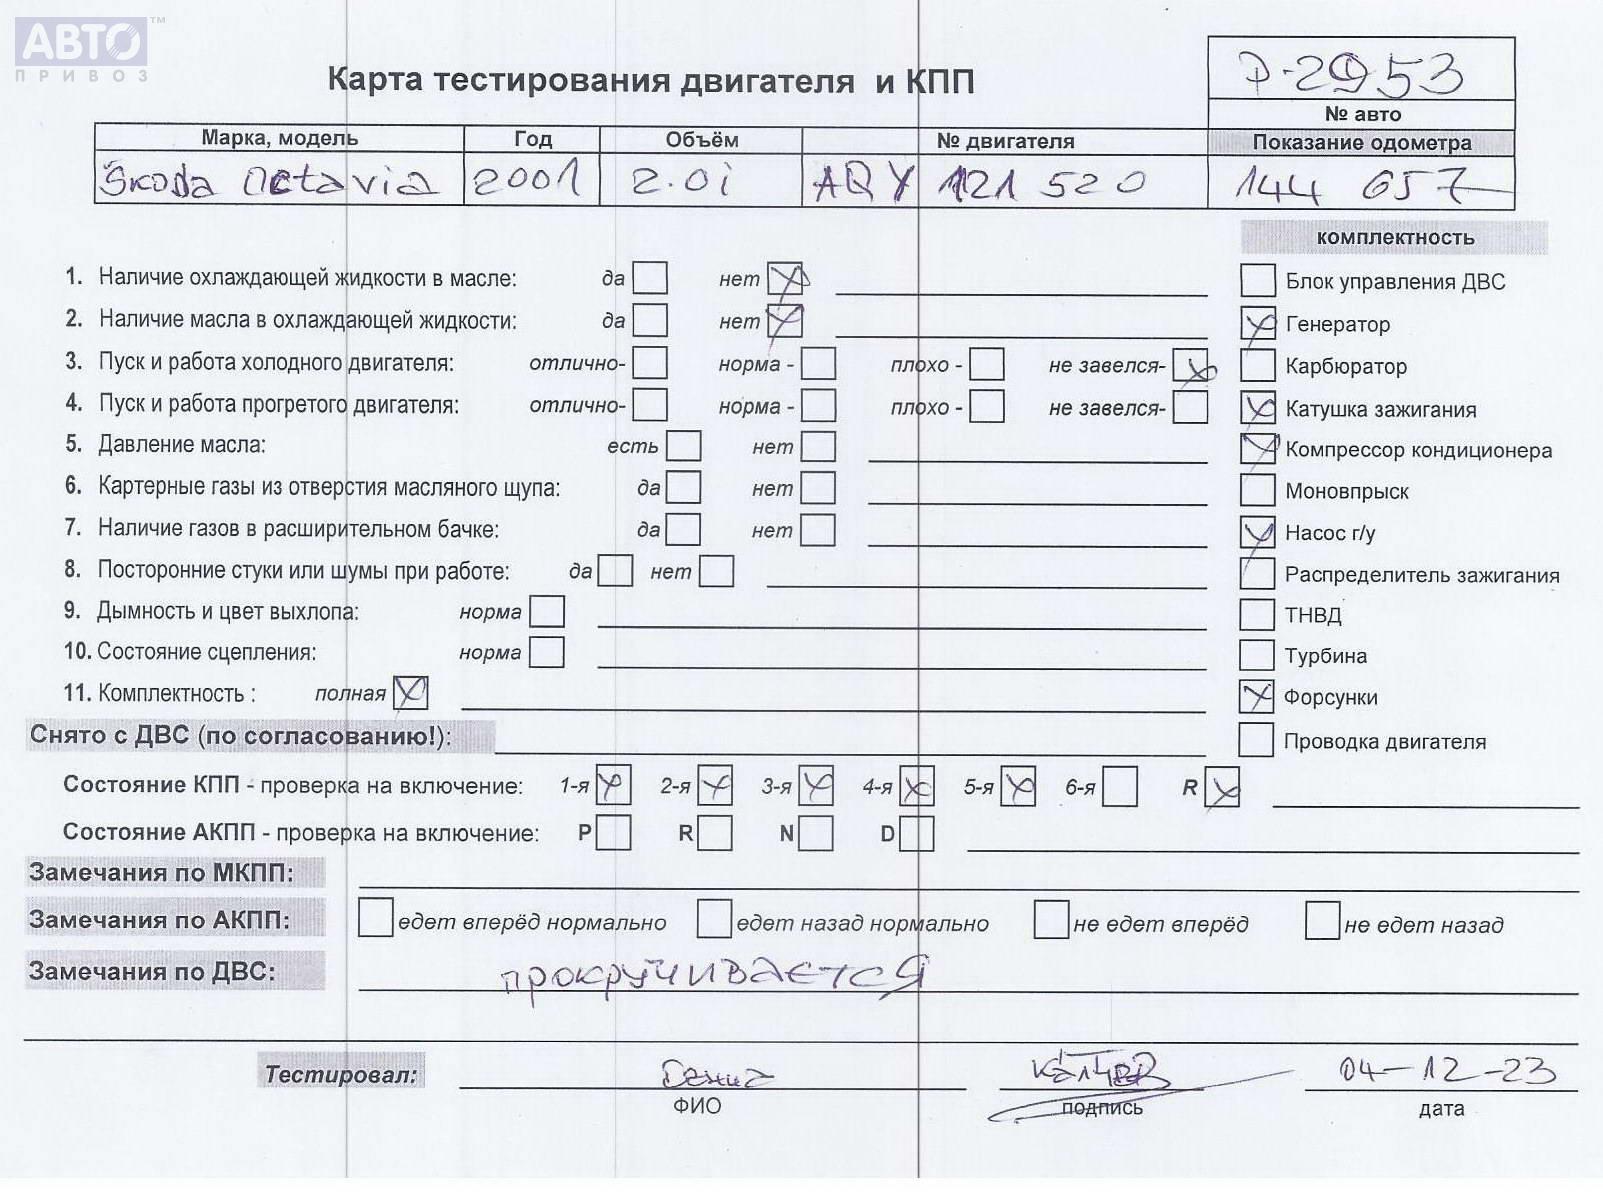 АВТО™
ПРИВОЗ
Карта тестирования двигателя и КПП
P-2953
№ авто
Марка, модель Год Объём № двигателя Показание одометра
Škoda Octavia 2001 2.0i AQY 121 520 144 657
комплектность
1. Наличие охлаждающей жидкости в масле: да нет X
Блок управления ДВС
2. Наличие масла в охлаждающей жидкости: да нет X
Генератор X
3. Пуск и работа холодного двигателя: отлично- норма - плохо - не завелся- X
Карбюратор
4. Пуск и работа прогретого двигателя: отлично- норма - плохо - не завелся-
X Катушка зажигания
5. Давление масла: есть нет
X Компрессор кондиционера
6. Картерные газы из отверстия масляного щупа: да нет
Моновпрыск
7. Наличие газов в расширительном бачке: да нет
X Насос г/у
8. Посторонние стуки или шумы при работе: да нет
Распределитель зажигания
9. Дымность и цвет выхлопа: норма
ТНВД
10. Состояние сцепления: норма
Турбина
11. Комплектность : полная X
X Форсунки
Снято с ДВС (по согласованию!):
Проводка двигателя
Состояние КПП - проверка на включение: 1-я X 2-я X 3-я X 4-я X 5-я X 6-я R X
Состояние АКПП - проверка на включение: P R N D
Замечания по МКПП:
Замечания по АКПП: едет вперёд нормально едет назад нормально не едет вперёд не едет назад
Замечания по ДВС: прокручивается
Тестировал: 04-12-23
ФИО подпись дата